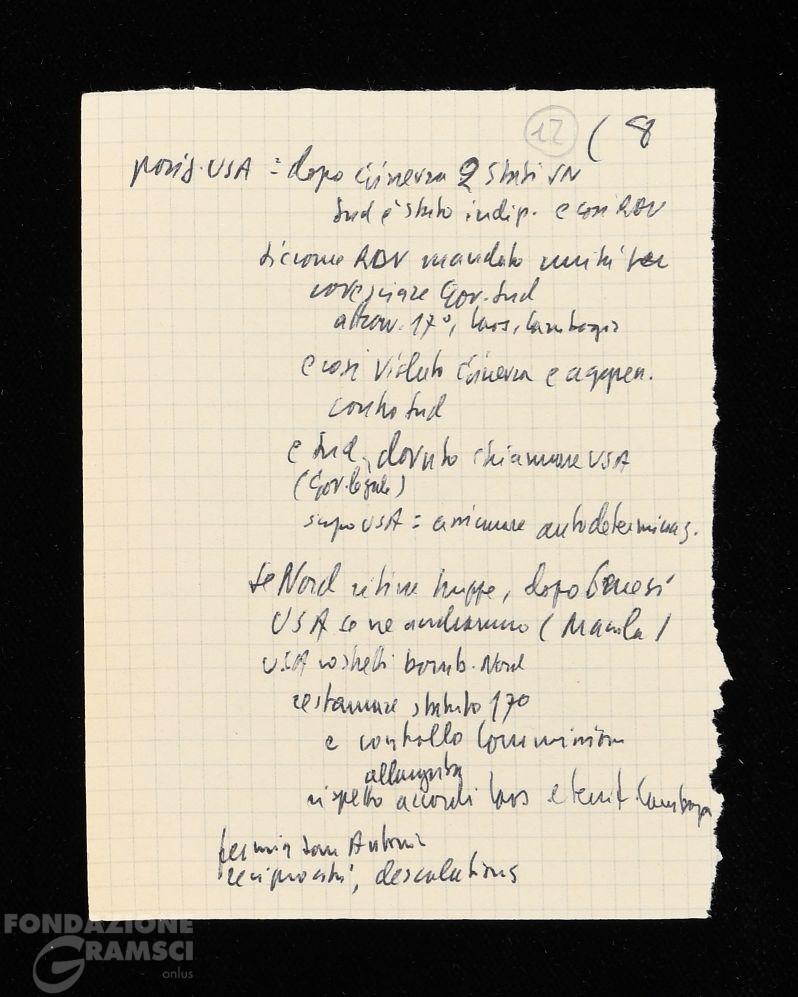 12 ( 8
posiz. USA = dopo Ginevra 2 Stati VN
Sud è stato indip. e così RDV
siccome RDV mandato unità per
rovesciare Gov. Sud
attrav. 17°, Laos, Cambogia
e così violato Ginevra e aggress.
contro Sud
e Sud, dovuto chiamare USA
(Gov. legale)
scopo USA = assicurare autodeterminaz.
se Nord ritira truppe, dopo 6 mesi
USA se ne andranno (Manila)
USA costretti bomb. Nord
restaurare statuto 17°
e controllo Commissione
allargata
rispetto accordi Laos e territ. Cambogia
formula San Antonio
reciprocità, descalation
FONDAZIONE
GRAMSCI
onlus